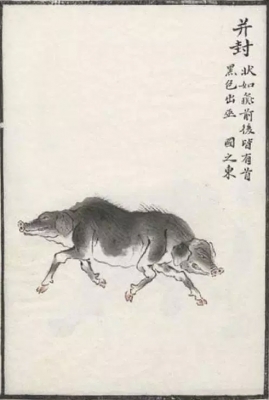 并封
狀如彘前後皆有首
黑色出巫 國之東